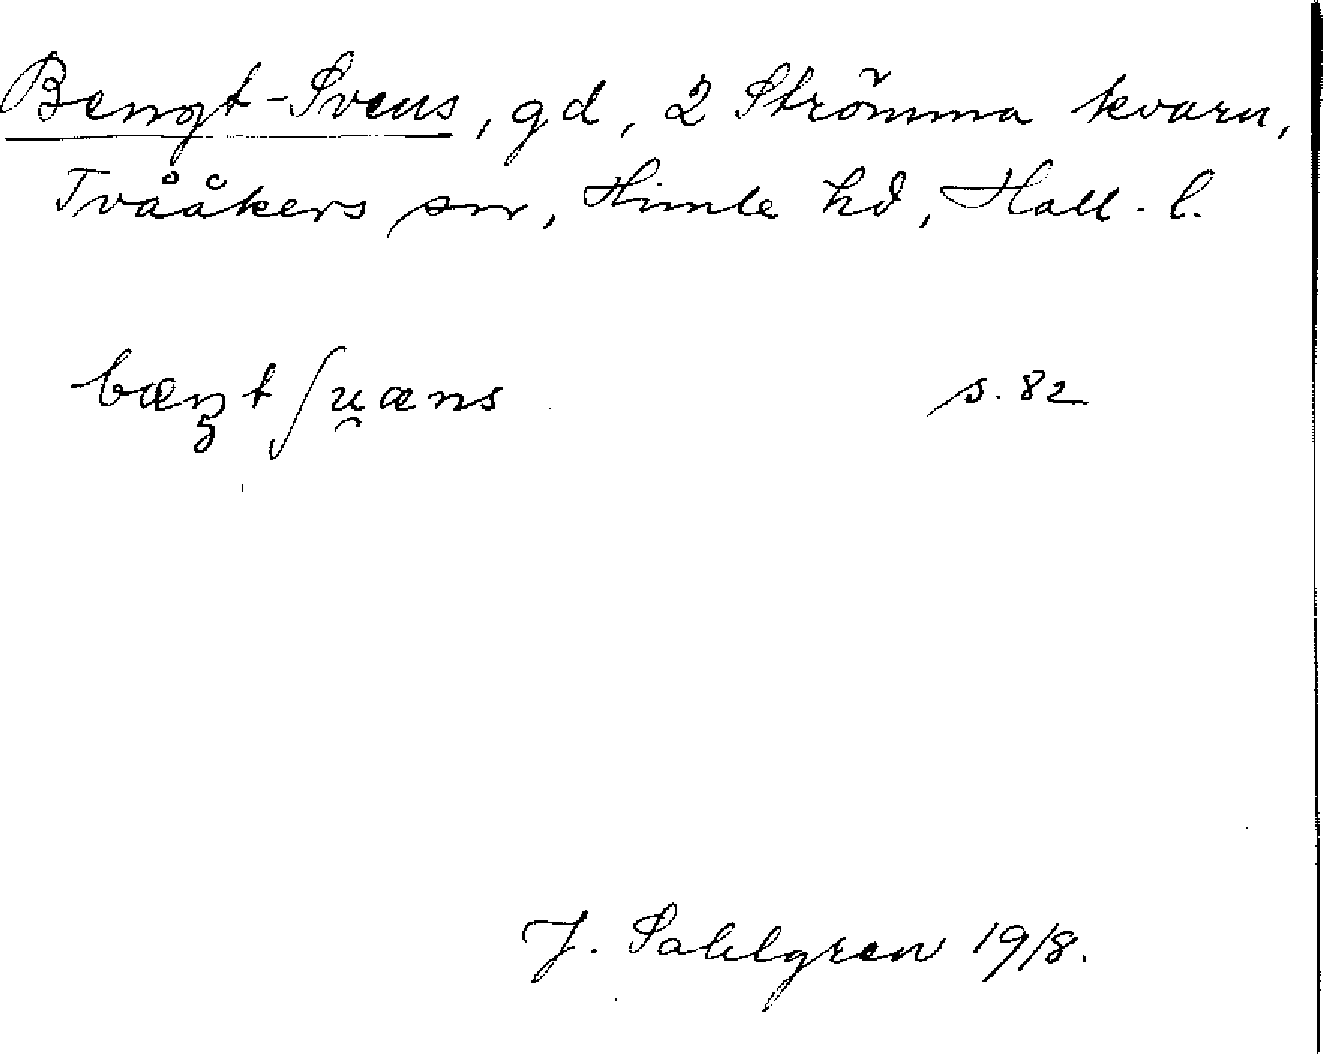 Bengt-Svens, gd, 2 Strömma kvarn,
Tvååkers sn, Himle hd, Hall. l.
s. 82
J. Sahlgren 1918.